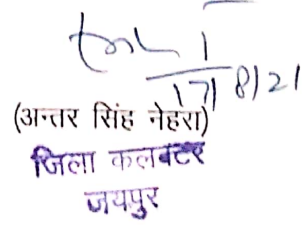 17/8/21
(अन्तर सिंह नेहरा)
जिला कलक्टर
जयपुर